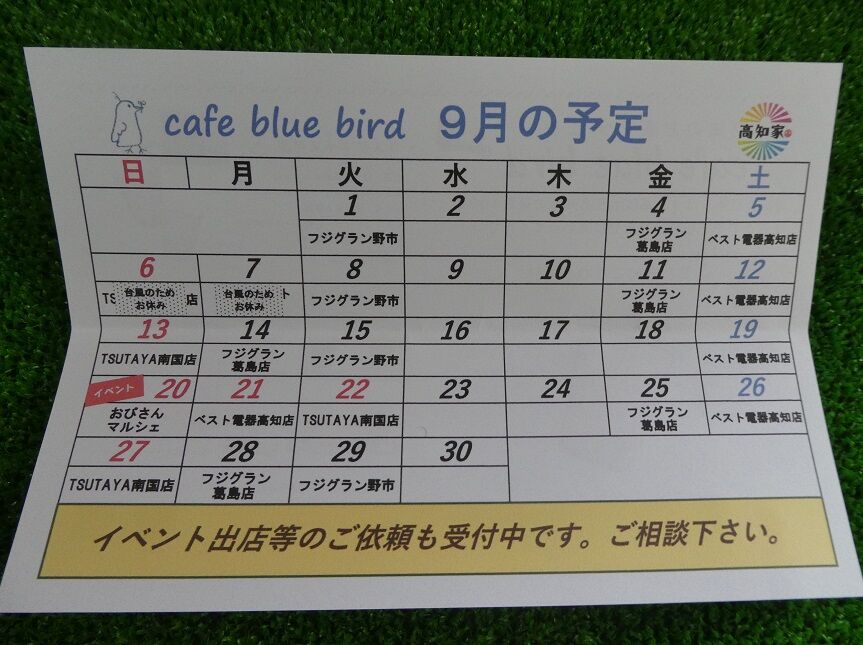 cafe blue bird 9月の予定
高知家
日 月 火 水 木 金 土
1 2 3 4 5
フジグラン野市 フジグラン葛島店 ベスト電器高知店
6 7 8 9 10 11 12
TS 台風のためお休み 店 台風のためお休み ト フジグラン野市 フジグラン葛島店 ベスト電器高知店
13 14 15 16 17 18 19
TSUTAYA南国店 フジグラン葛島店 フジグラン野市 ベスト電器高知店
イベント 20 21 22 23 24 25 26
おびさんマルシェ ベスト電器高知店 TSUTAYA南国店 フジグラン葛島店 ベスト電器高知店
27 28 29 30
TSUTAYA南国店 フジグラン葛島店 フジグラン野市
イベント出店等のご依頼も受付中です。ご相談下さい。